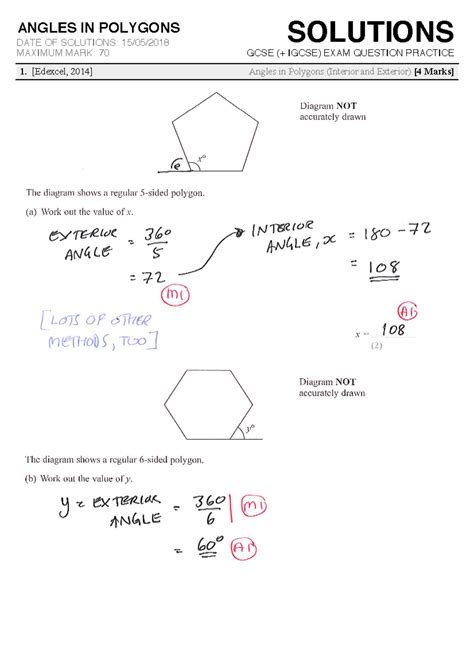 ANGLES IN POLYGONS
SOLUTIONS
DATE OF SOLUTIONS: 15/05/2018
MAXIMUM MARK: 70
GCSE (+ IGCSE) EXAM QUESTION PRACTICE
1. [Edexcel, 2014]
Angles in Polygons (Interior and Exterior) [4 Marks]
Diagram NOT
accurately drawn
e
x°
The diagram shows a regular 5-sided polygon.
(a) Work out the value of x.
EXTERIOR ANGLE = 360/5
= 72
M1
INTERIOR ANGLE, x = 180 - 72
= 108
[LOTS OF OTHER
METHODS, TOO]
A1
x = 108
(2)
Diagram NOT
accurately drawn
y°
The diagram shows a regular 6-sided polygon.
(b) Work out the value of y.
y = EXTERIOR ANGLE = 360/6 M1
= 60° A1